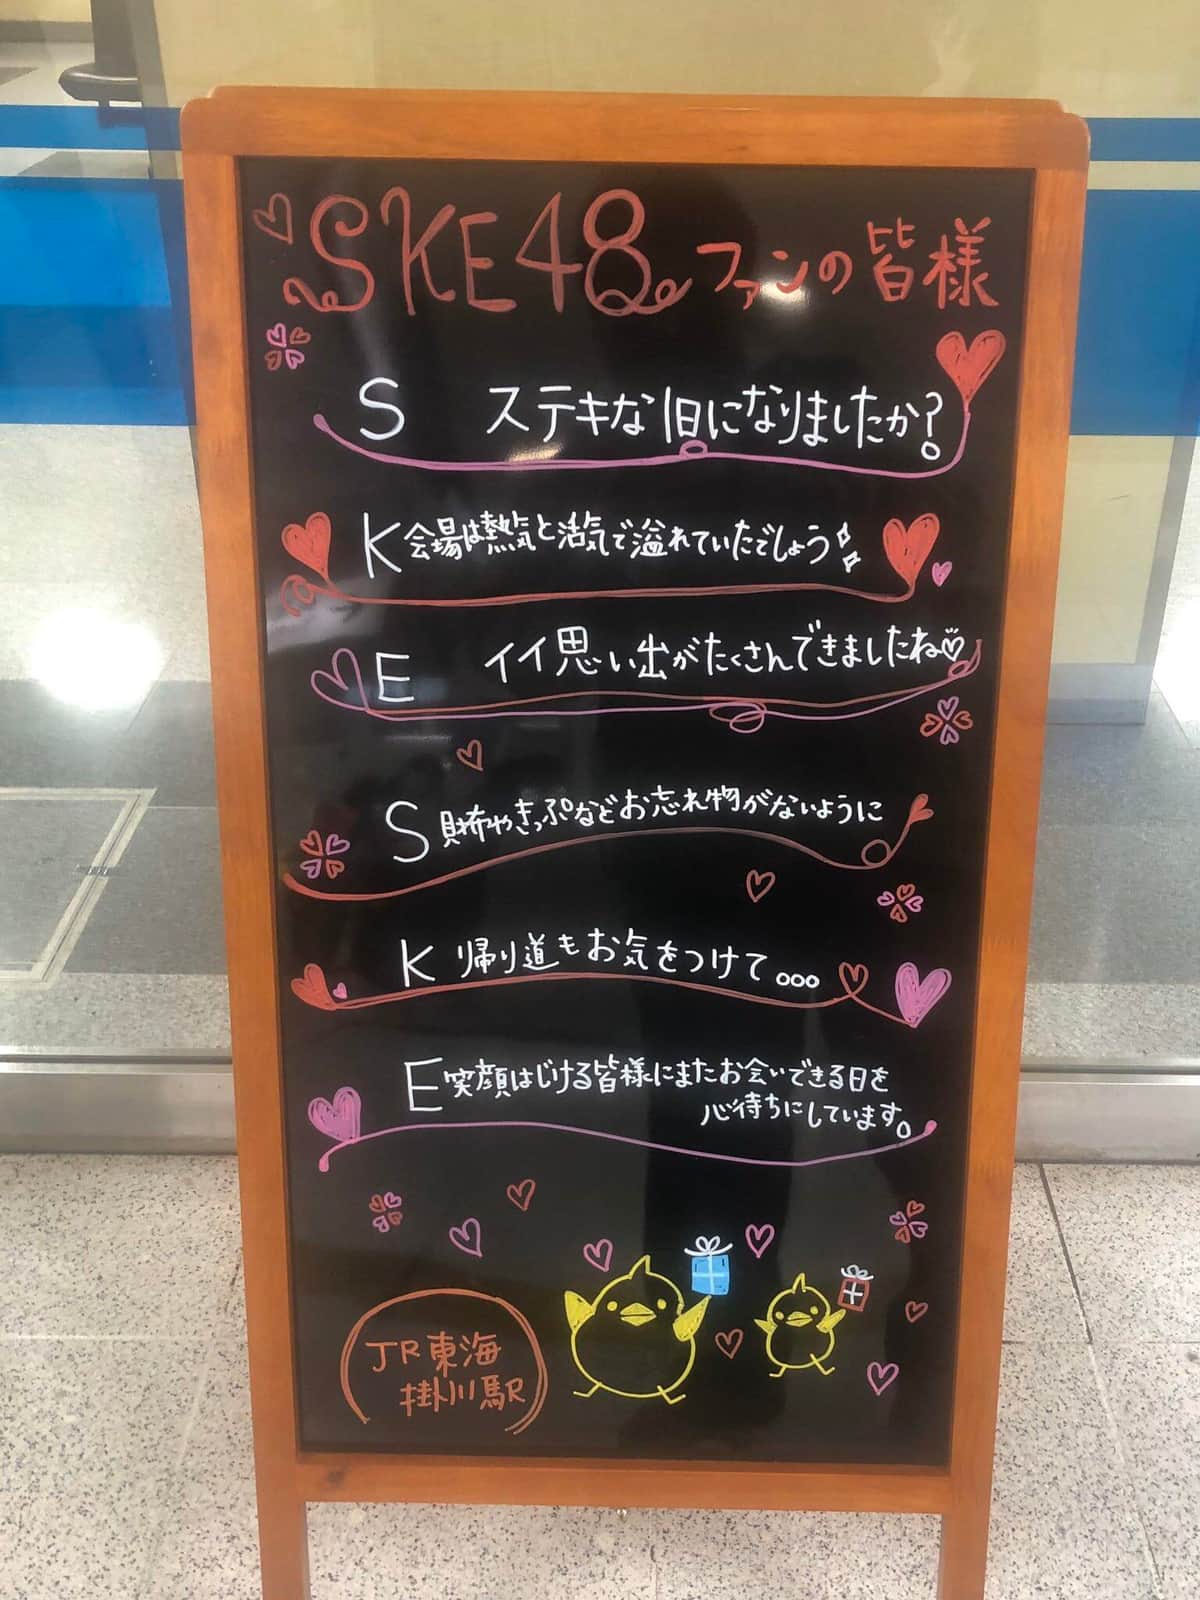 SKE48ファンの皆様
S ステキな1日になりましたか?
K 会場は熱気と活気で溢れていたでしょう
E イイ思い出がたくさんできましたね
S 財布やきっぷなどお忘れ物がないように
K 帰り道もお気をつけて...
E 笑顔はじける皆様にまたお会いできる日を
心待ちにしています。
JR東海
掛川駅